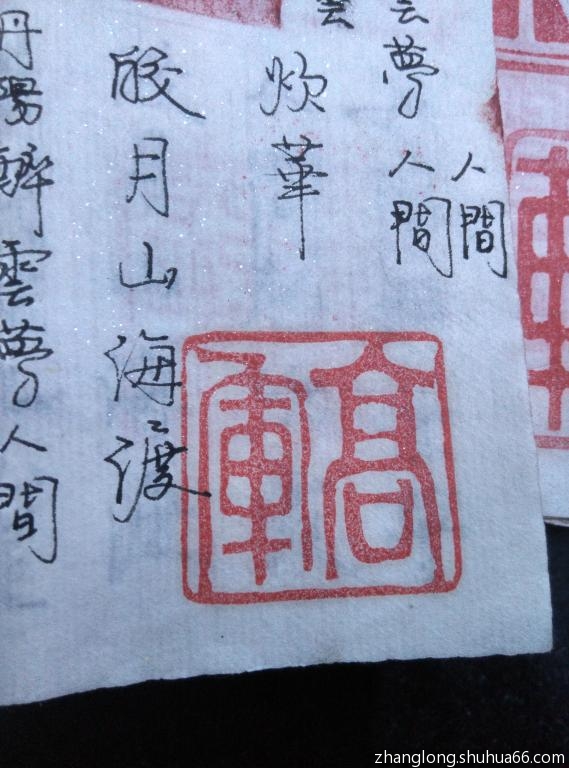 人間
雲夢人間
炊華
皎月山海渡
丹陽醉雲夢人間
高軍
zhanglong.shuhua66.com